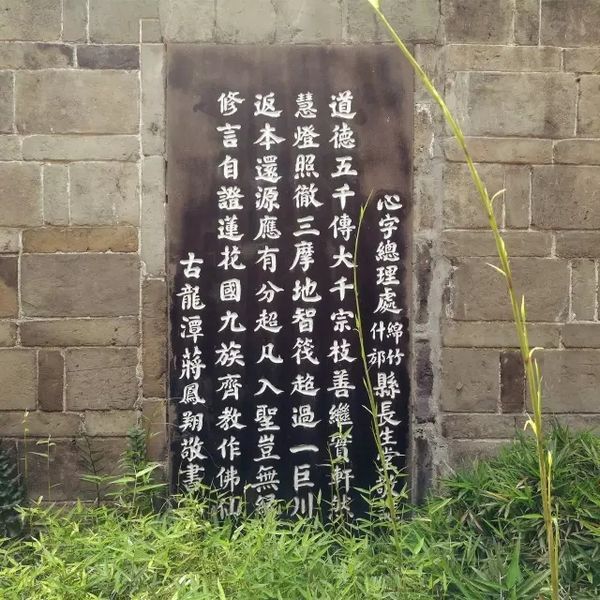 心字總理處綿竹什邡縣長生堂敬
道德五千傳大千宗枝善繼軒然
慧燈照徹三摩地智筏超過一巨川
返本還源應有分超凡入聖豈無緣
修言自證蓮花國九族齊教作佛仙
古龍潭蔣鳳翔敬書